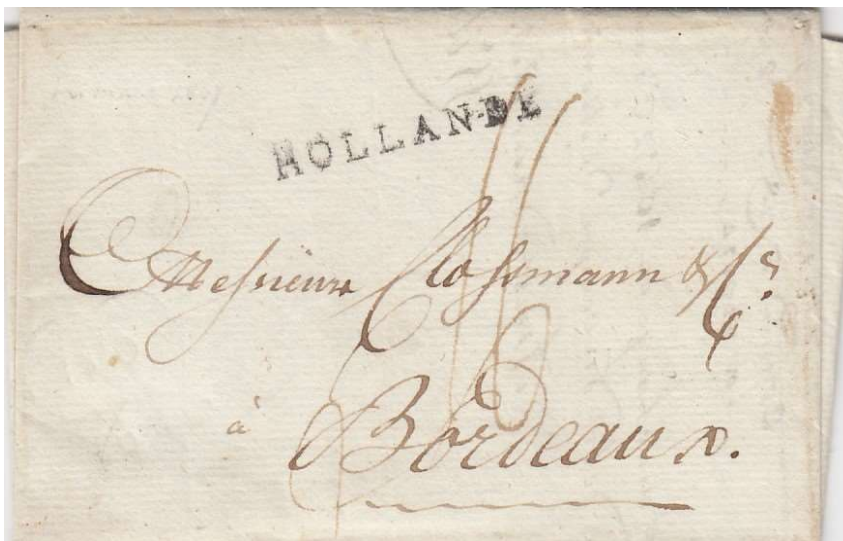 HOLLANDE
Messieurs Clossmann & Cie
à
Bordeaux.